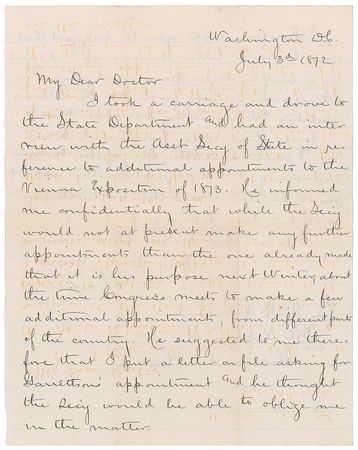 Washington D.C.
July 3d 1872
My Dear Doctor
I took a carriage and drove to
the State Department and had an inter
view with the Asst Secy of State in re-
ference to additional appointments to the
Vienna Exposition of 1873. He informed
me confidentially that while the Secy
would not at present make any further
appointments than the one already made
that it is his purpose next Winter, about
the time Congress meets to make a few
additional appointments from different parts
of the country. He suggested to me there-
fore that I put a letter on file asking for
appointment and he thought
the Secy would be able to oblige me
in the matter.